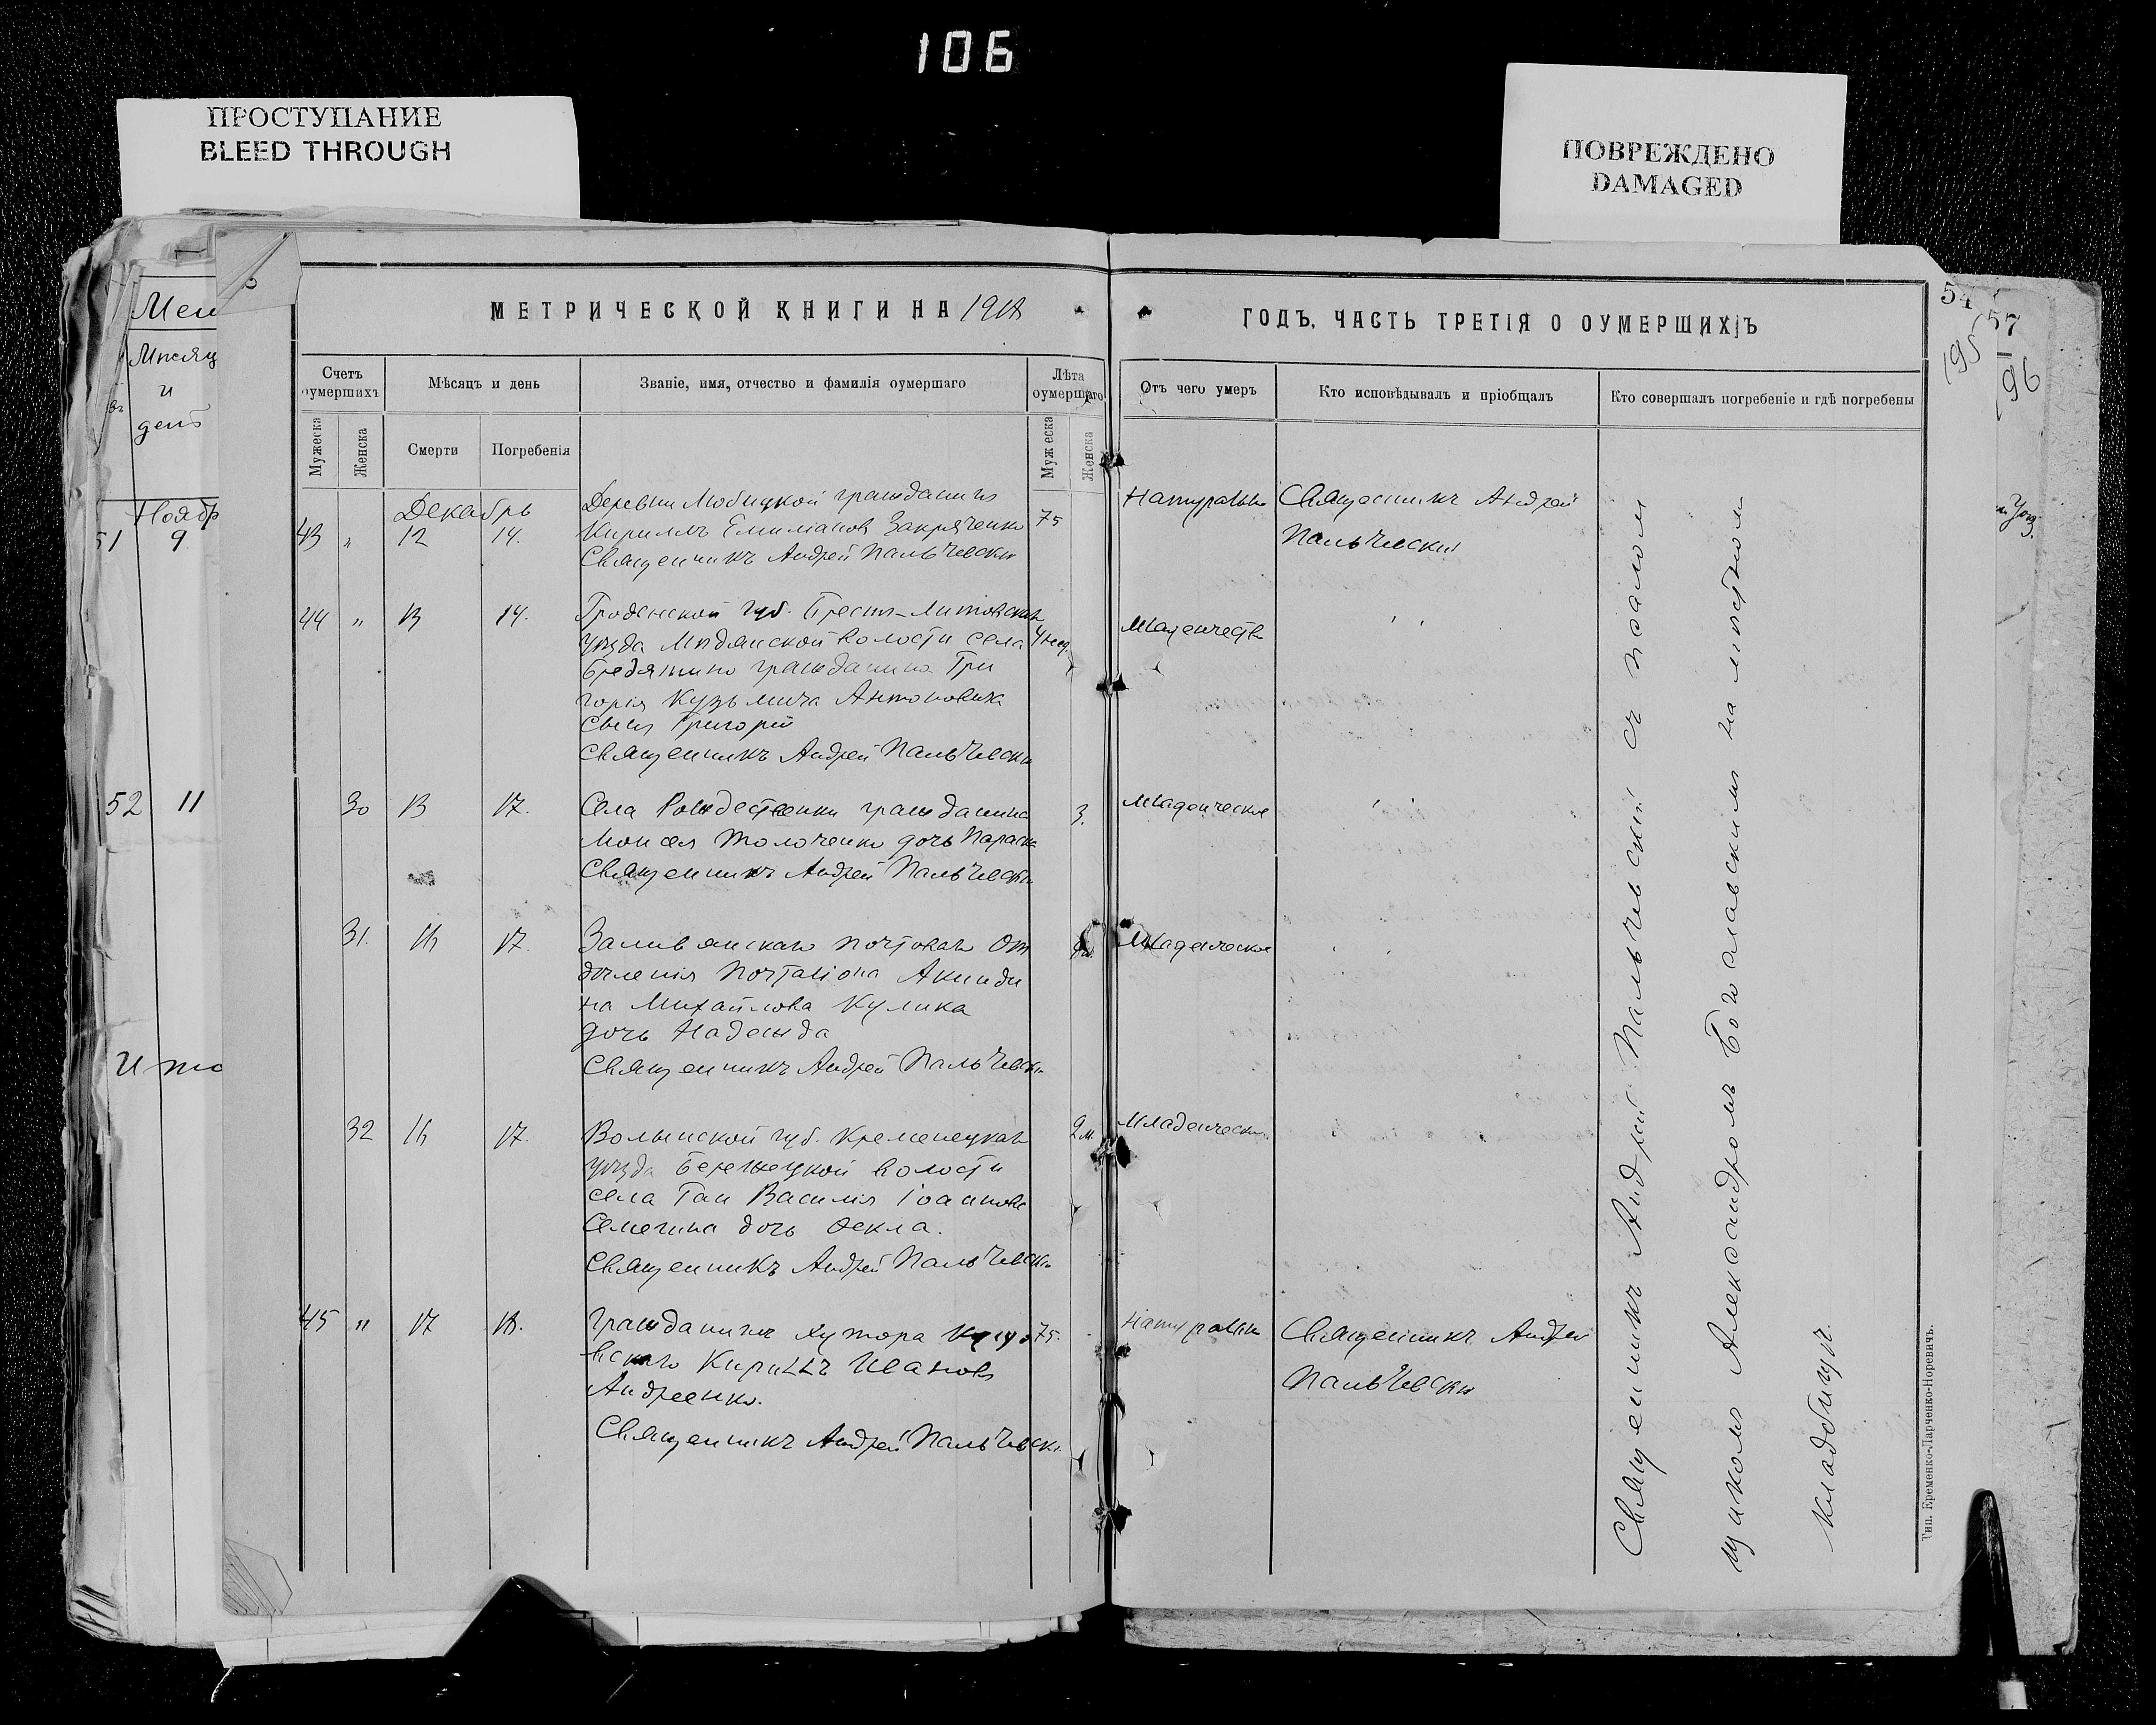 106
ПРОСТУПАНИЕ
BLEED THROUGH
ПОВРЕЖДЕНО
DAMAGED
Мѣсяц
и
день
Ноябр
51 9
52 11
Ито
МЕТРИЧЕСКОЙ КНИГИ НА 1918
ГОДЪ, ЧАСТЬ ТРЕТІЯ О ОУМЕРШИХЪ
54
57
195
96
Счетъ оумершихъ
Мѣсяцъ и день
Званіе, имя, отчество и фамилія оумершаго
Лѣта оумершаго
Отъ чего умеръ
Кто исповѣдывалъ и пріобщалъ
Кто совершалъ погребеніе и гдѣ погребены
Мужеска
Женска
Смерти
Погребенія
Мужеска
Женска
Декабрь
43 " 12 14.
Деревни Любицкой гражданинъ
Кириллъ Емиліановъ Закряченко
Священникъ Андрей Пальчевскій
75
Натурально
Священникъ Андрей
Пальчевскій
44 " 13 14.
Гродненской губ. Брестъ-Литовскаго
уѣзда Мѣдянской волости села
гражданина Гри
горія Кузьмича Антоновича
сынъ Григорій
Священникъ Андрей Пальчевскій
4 нед.
Младенчество
30 13 17.
Села Рождественки гражданина
Моисея Толоченко дочь Параска
Священникъ Андрей Пальчевскій
3.
Младенческое
31. 16 17.
Заливянскаго почтоваго От
дѣленія почталіона Акинди
на Михайлова Кулика
дочь Надежда
Священникъ Андрей Пальчевскій
Младенческое
32 16 17.
Волынской губ. Кременецкаго
уѣзда Бережецкой волости
села Гаи Василія Іоаннова
Семегина дочь Ѳекла.
Священникъ Андрей Пальчевскій
2 м.
Младенческое
45 " 17 18.
Гражданинъ хутора
вскаго Кириллъ Ивановъ
Андреенко.
Священникъ Андрей Пальчевскій
75.
Натурально
Священникъ Андрей
Пальчевскій
Священникъ Андрей Пальчевскій съ псалом
щикомъ Александромъ Богославскимъ на мѣстномъ
кладбищѣ.
Тип. Еременко-Ларченко-Норевичъ.